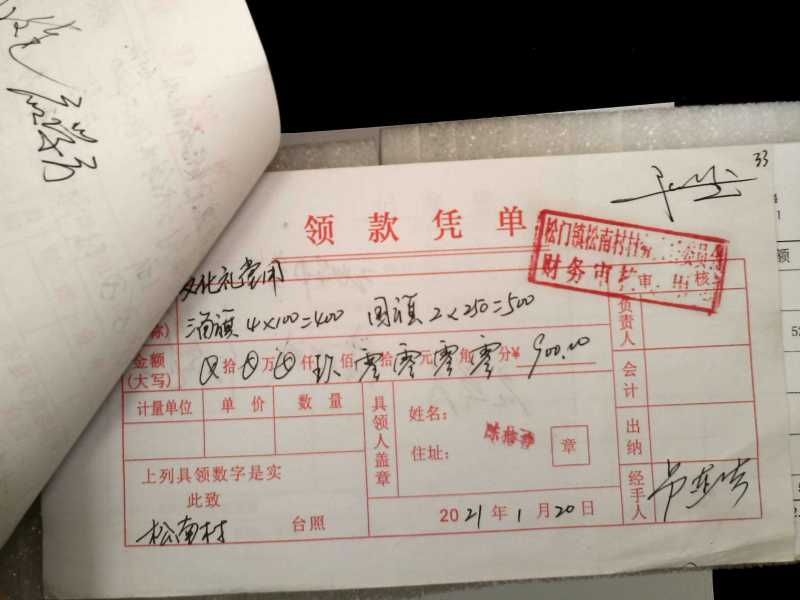 33
领款凭单
松门镇松南村村
财务审
审 核
文化礼堂用
4×100=400 国旗 2×250=500
称)
金额
(大写)
拾 万 仟 玖 佰 零 拾 零 元 零 角 零 分 ¥ 900.00
计量单位 单价 数量
具领人盖章
姓名:
住址:
章
上列具领数字是实
此致
松南村 台照
2021年1月20日
负责人
会计
出纳
经手人
额